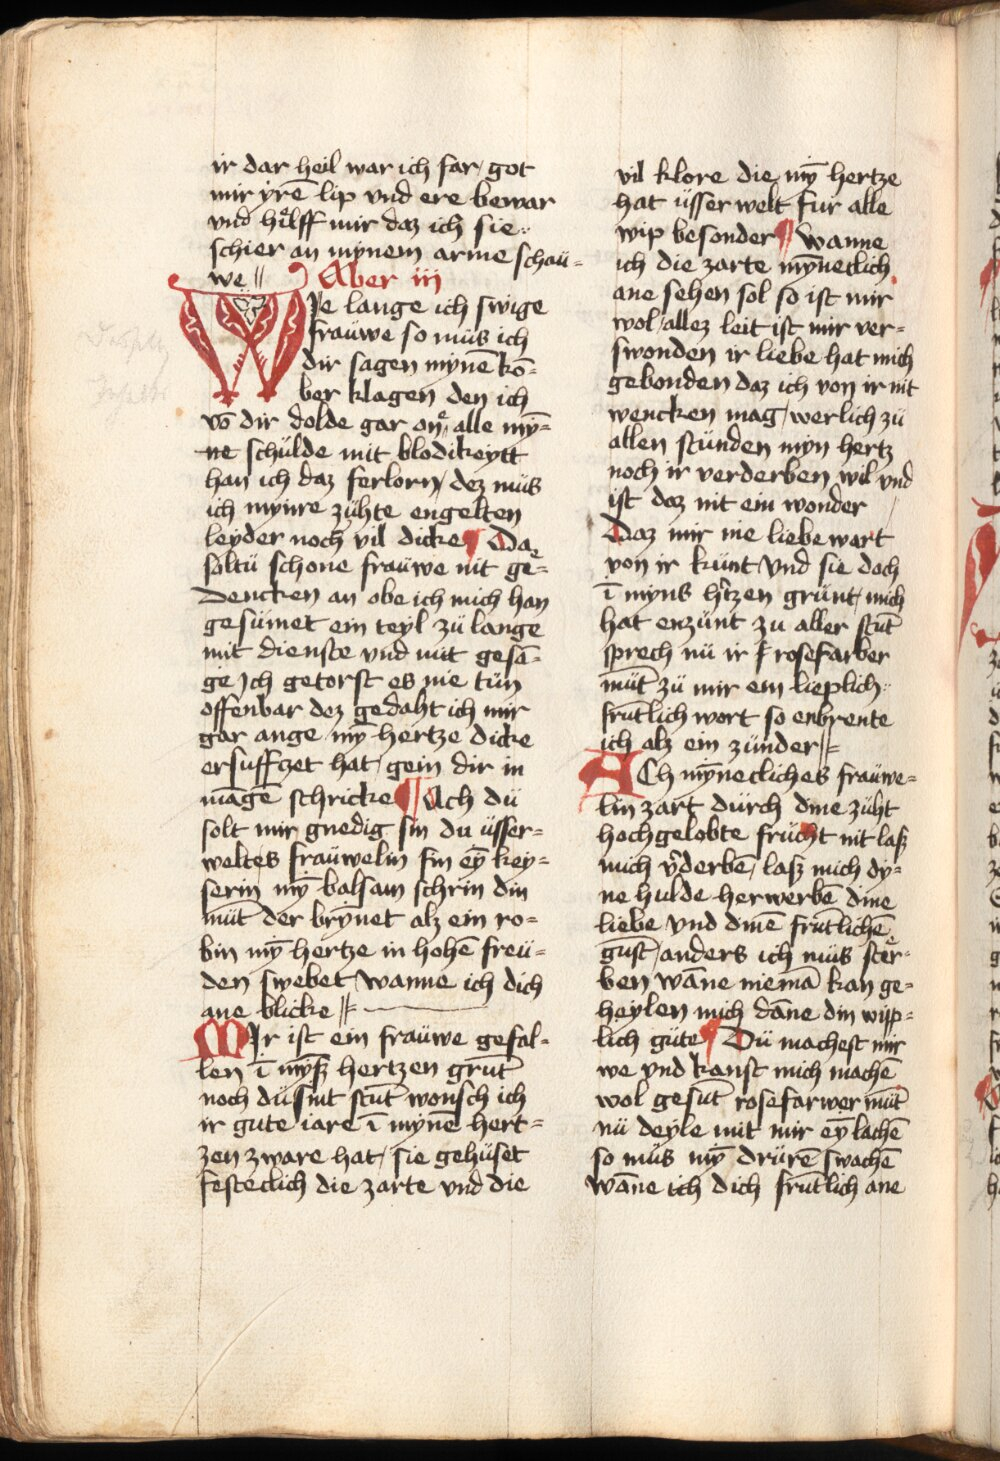 ir dar heil war ich far / got
mir yrē lip vnd ere bewar
vnd hůlff mir daz ich sie
schier an mynem arme schaü=
we //  Aber iij
WIe lange ich swige
fraüwe so müs ich
dir sagen mynē kō=
ber klagen den ich
vō dir dolde gar one alle mȳ=
ne schülde mit blodikeytt
han ich daz ferlorn / dez müs
ich mynre zühte engelten
leyder noch vil dicke ¶ Da
soltü schone fraüwe nit ge=
dencken an obe ich mich han
gesümet ein teyl zü lange
mit dienste vnd mit gesā=
ge Ich getorst es nie tün
offenbar dez gedaht ich mir
gar ange mȳ hertze dicke
ersufftzet hat / gein dir in
māgē schricke ¶ Ach dü
solt mir gnedig sin du üsser=
weltes fraüwelin sin eȳ key=
serin mȳ balsam schrin din
müt der brynet alz ein ro=
bin mȳ hertze in hohē freü=
den swebet / wanne ich dich
ane blicke //
MIr ist ein fraüwe gefal=
len ī mȳß hertzen grüt
noch düsint stüt wonsch ich
ir gute iare ī mynē hert=
zen zware hat / sie gehüset
festeclich die zarte vnd die
vil klore die mȳ hertze
hat üsser welt fur alle
wip besonder ¶ Wanne
ich die zarte mȳneclich
ane sehen sol so ist mir
wol / allez leit ist mir ver=
swonden ir liebe hat mich
gebonden daz ich von ir nit
wencken mag / werlich zü
allen stünden myn hertz
noch ir verderben wil vnd
ist daz nit ein wonder
Daz mir nie liebe wart
von ir künt / Vnd sie doch
ī myns h'tzen grünt / mich
hat enzünt zu aller stüt
sprech nü ir rosefarber
müt zü mir ein lieplich
frütlich wort so enbrente
ich alz ein zünder //=
ACh mȳnecliches fraüwe=
lin zart dürch dine züht
hochgelobte frücht nit laß
mich v'derbē / laß mich dy=
ne hulde herwerbē dine
liebe vnd dinē frūtlichē
gūst / anders ich müs ster=
ben wāne niemā kan ge=
heylen mich dāne din wijp=
lich güte ¶ Dü machest mir
we vnd kanst mich machē
wol gesūt rosefarwer müt
nü deyle mit mir eȳ lachē
so müs mȳ drürē swachē
wāne ich dich frūtlich ane